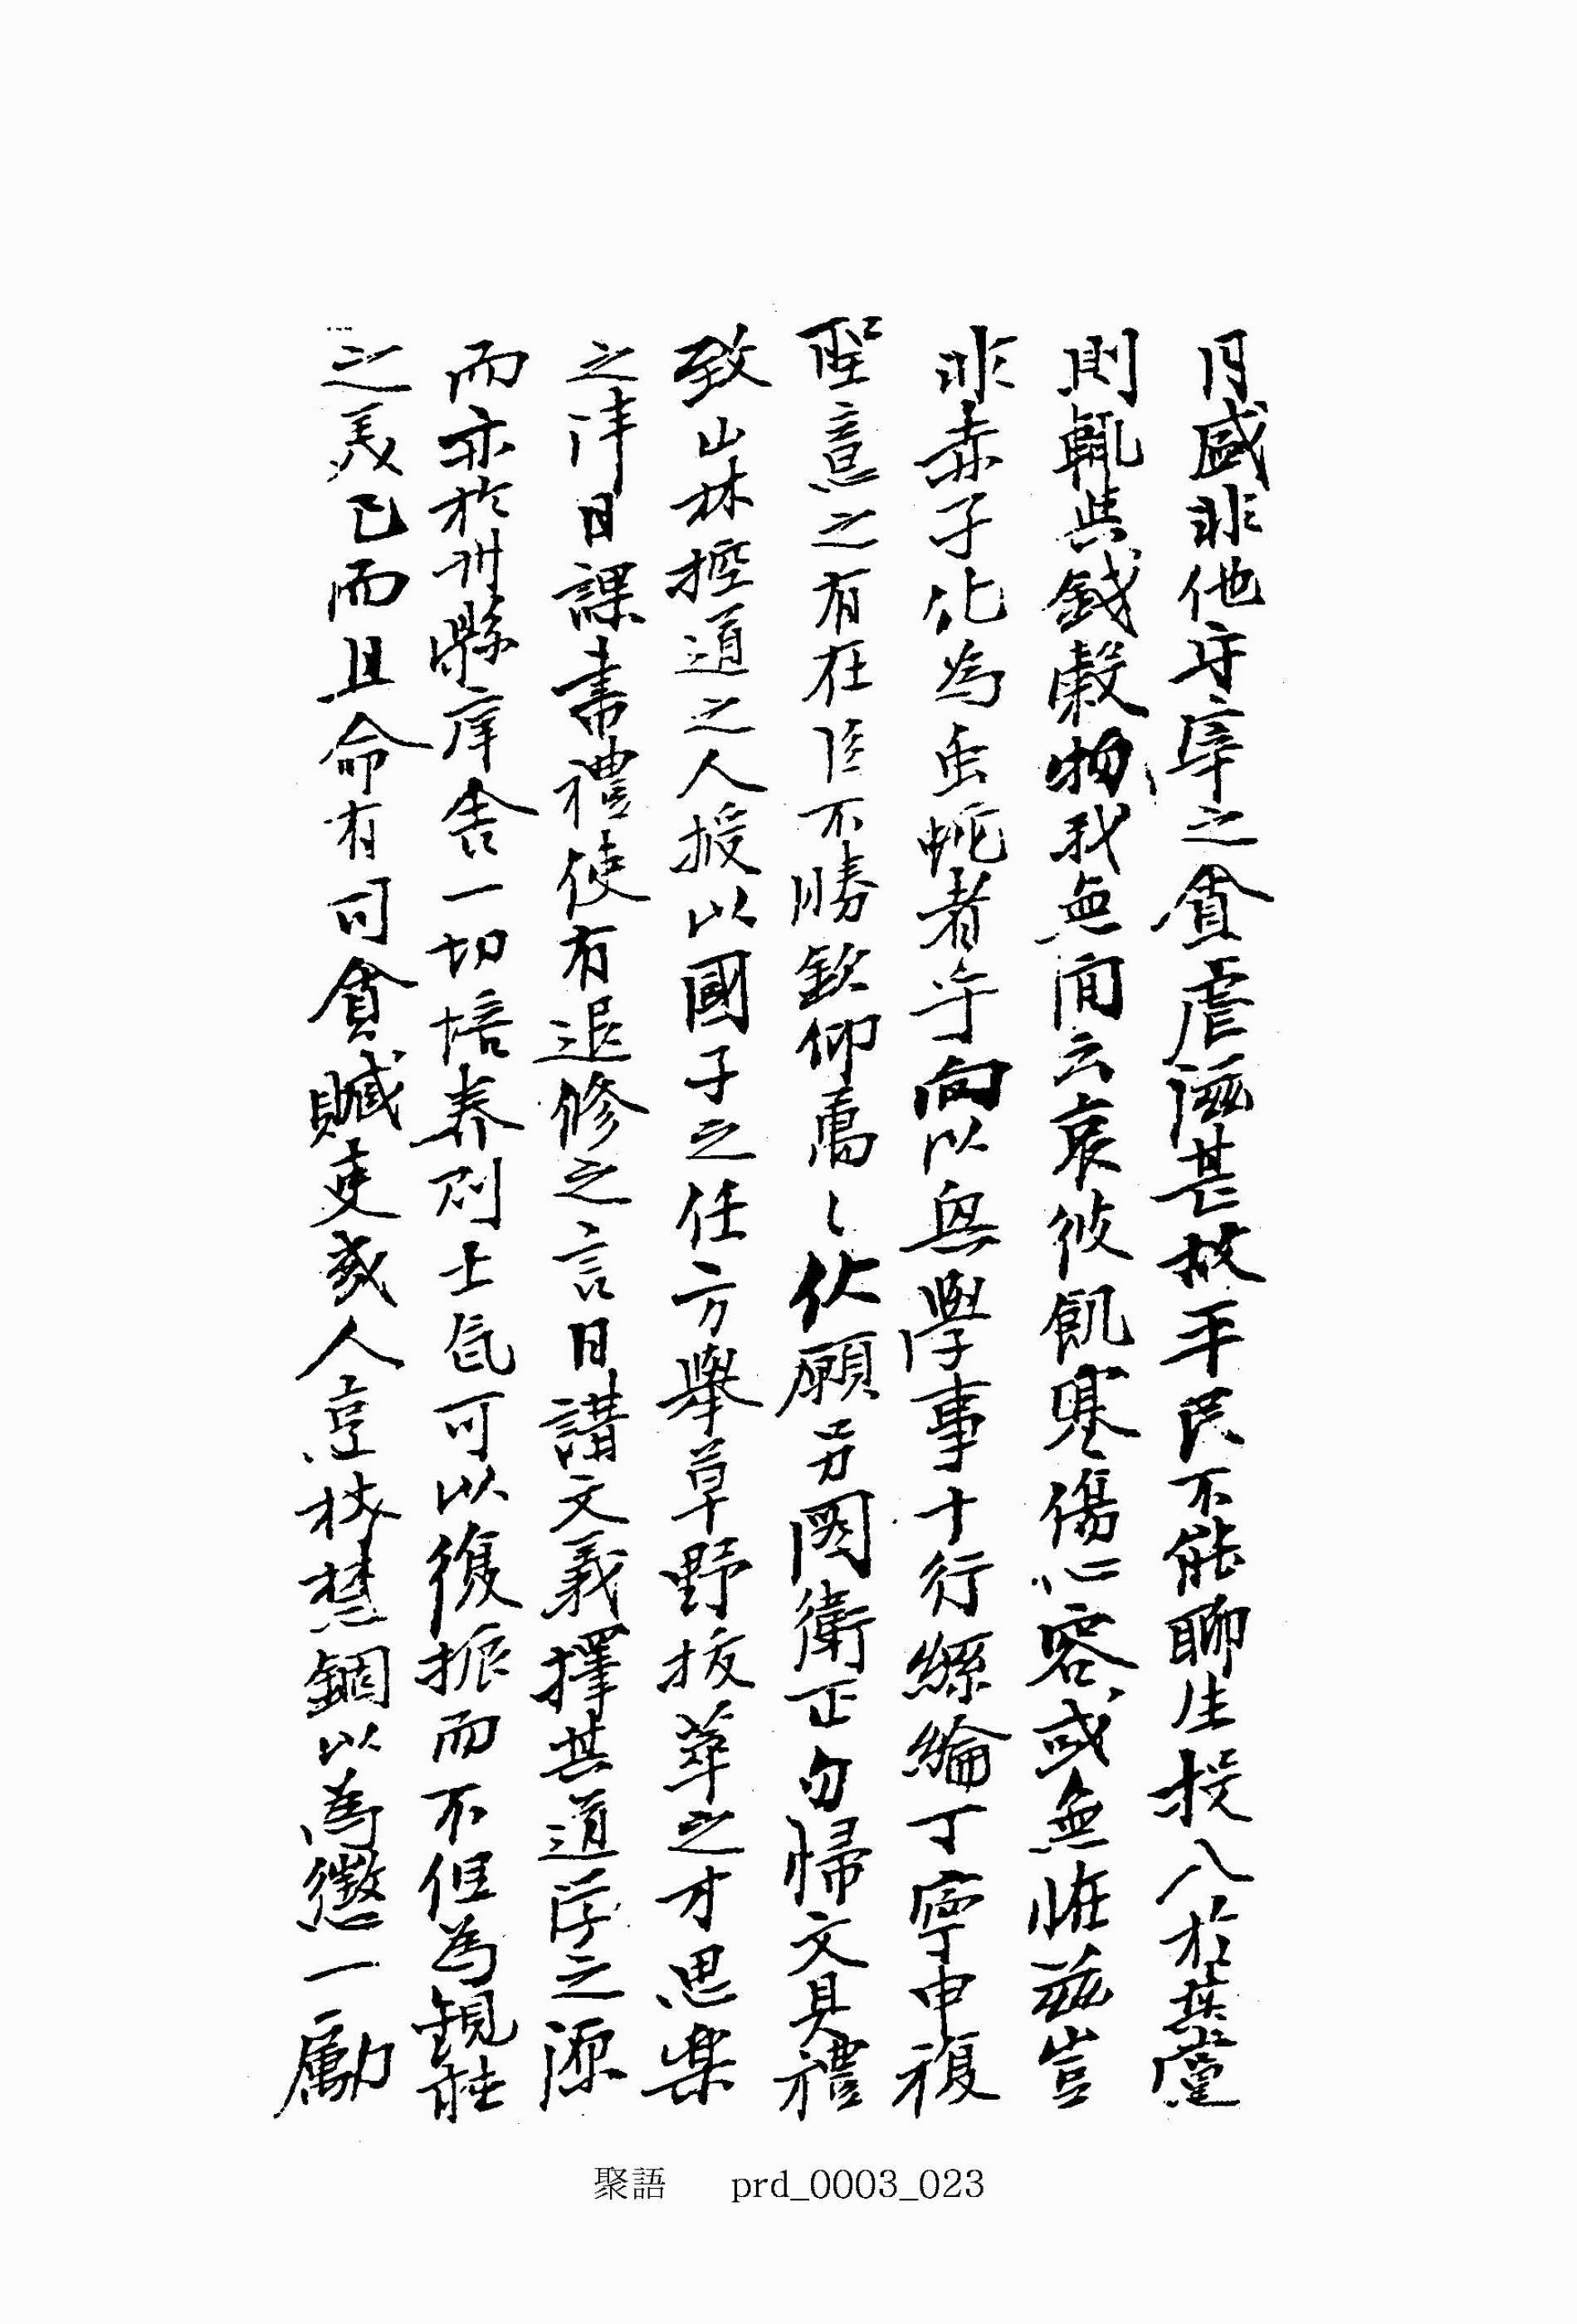 月盛非他守宰之貪虐滋甚故平民不能聊生投入於其黨
則輒與錢穀物我無間云哀彼飢寒傷心容或無恠玆豈
非赤子化為虫蛇者乎向以興學事十行絲綸丁寧申複
聖意之有在臣不勝欽仰焉〻伏願另図衛正勿帰文具禮
致山林搢道之人授以國子之任方舉草野抜萃之才思楽
之泮日課書禮使有退修之言日講文義擇其道学之源
而亦於州縣庠舍一切培养則士气可以復振而不但為観
之美已而且命有司貪贓吏或人意杖禁錮以為懲一勵
聚語 prd_0003_023